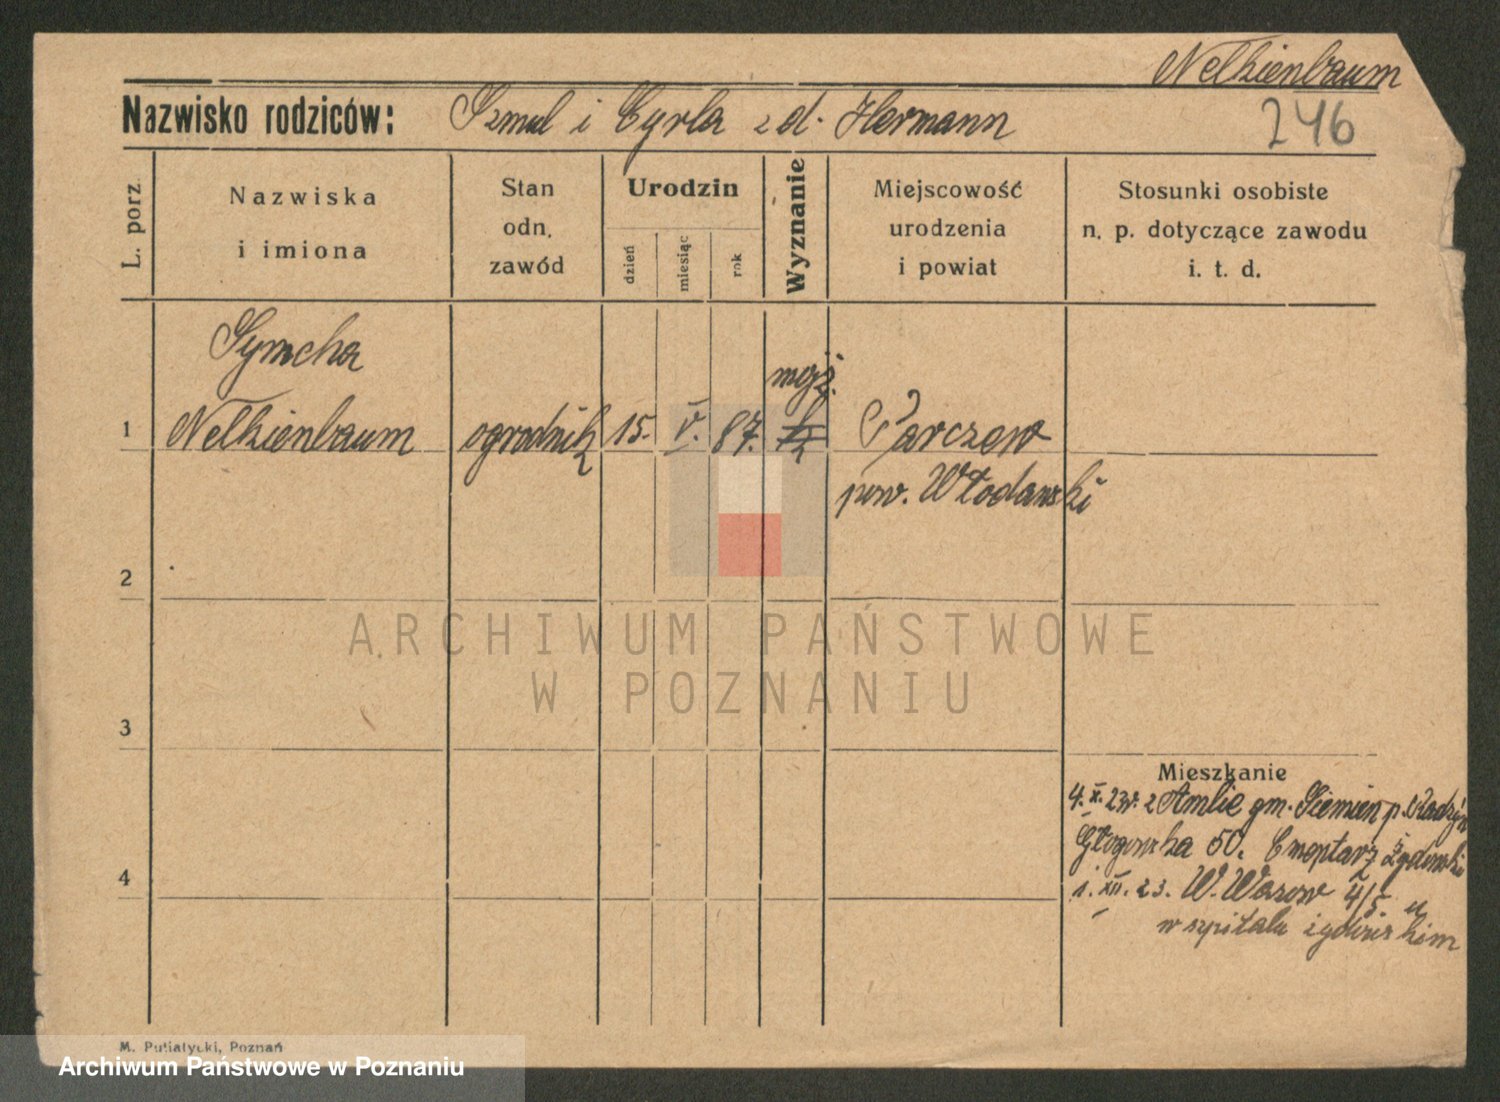 Nelkienbaum
246
Nazwisko rodziców: Szmul i Cyrla z d. Hermann
L. porz.
Nazwiska
i imiona
Stan
odn.
zawód
Urodzin
dzień
miesiąc
rok
Wyznanie
Miejscowość
urodzenia
i powiat
Stosunki osobiste
n. p. dotyczące zawodu
i. t. d.
Symcha
mojż.
1 Nelkienbaum ogrodnik 15. V. 87. Parczew
pow. Włodawski
2
3
4
ARCHIWUM PAŃSTWOWE
W POZNANIU
Mieszkanie
4. X. 23r. z Amlie gm. Siemien p. Radzyń
Głogowska 50. Cmentarz żydowski
1. XII. 23. W. Wazow 4/5
w szpitalu żydowskim
M. Putiatycki, Poznań
Archiwum Państwowe w Poznaniu